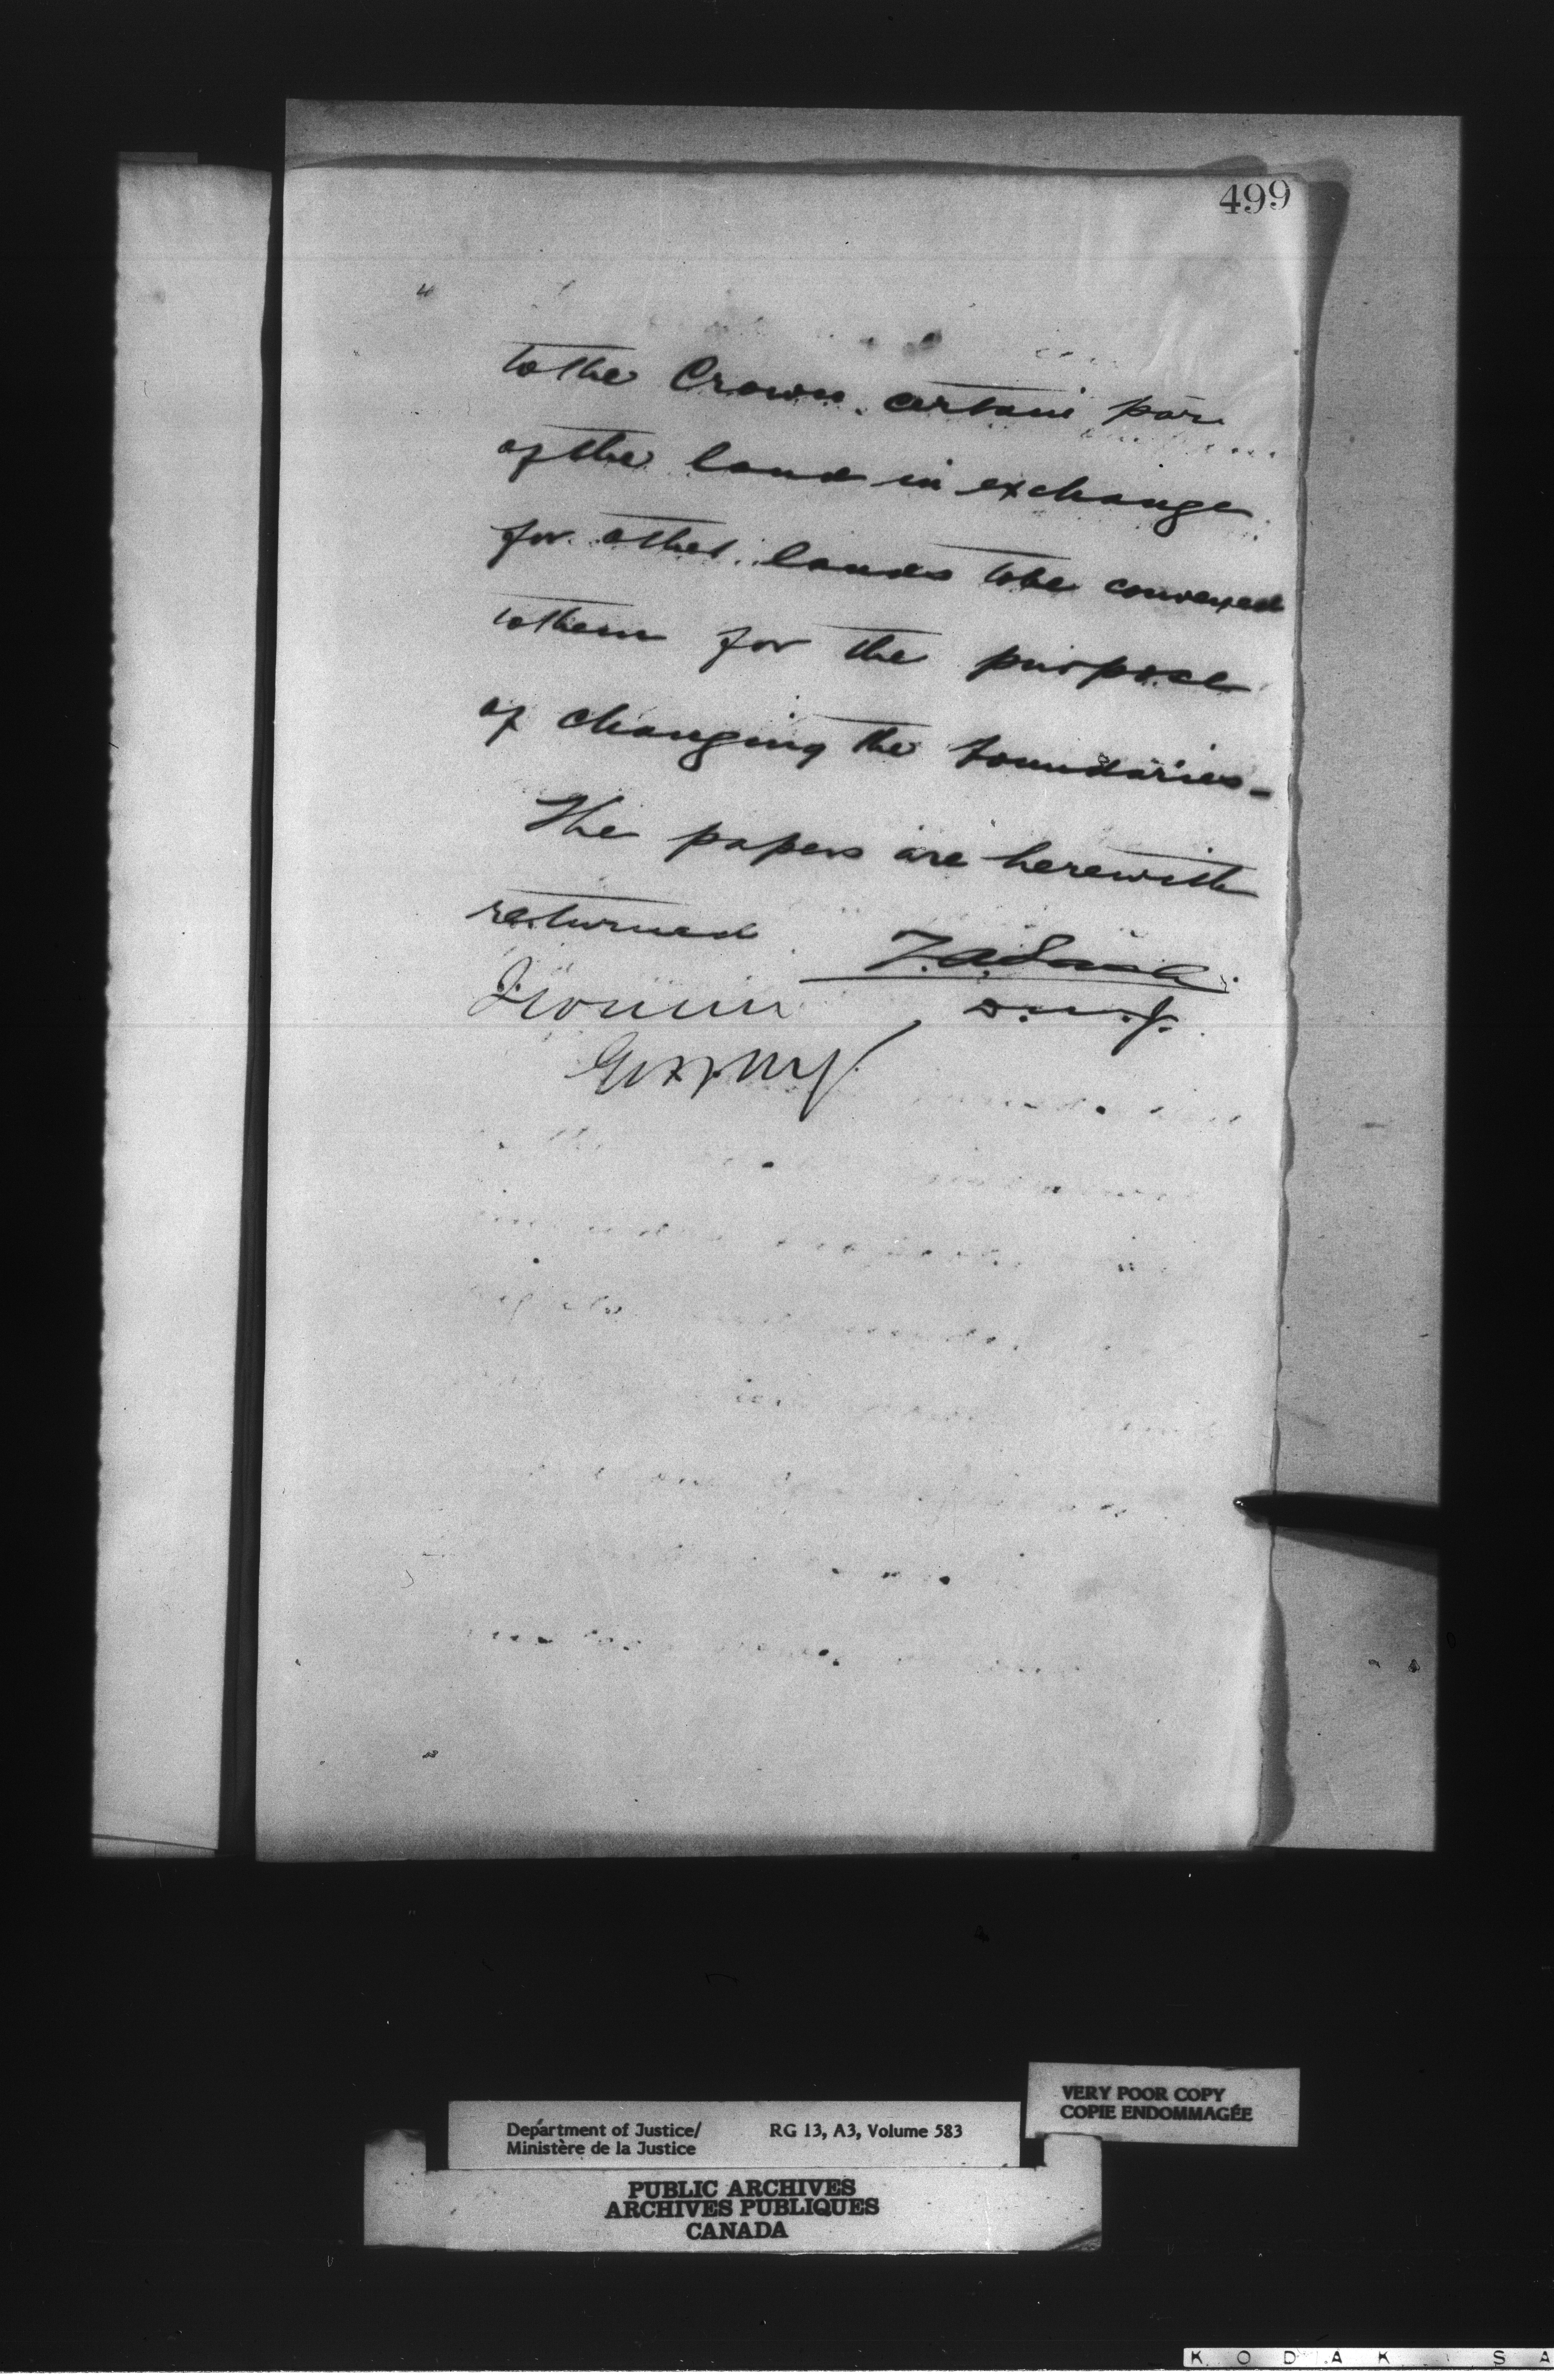 499
to the Crown certain par
of the land in exchange
for other lands to be conveyed
to them for the purpose
of changing the boundaries -
The papers are herewith
returned
Z.A. Lash
D.M.J.
I concur
Department of Justice/ RG 13, A3, Volume 583
Ministère de la Justice
VERY POOR COPY
COPIE ENDOMMAGÉE
PUBLIC ARCHIVES
ARCHIVES PUBLIQUES
CANADA
K O D A K S A